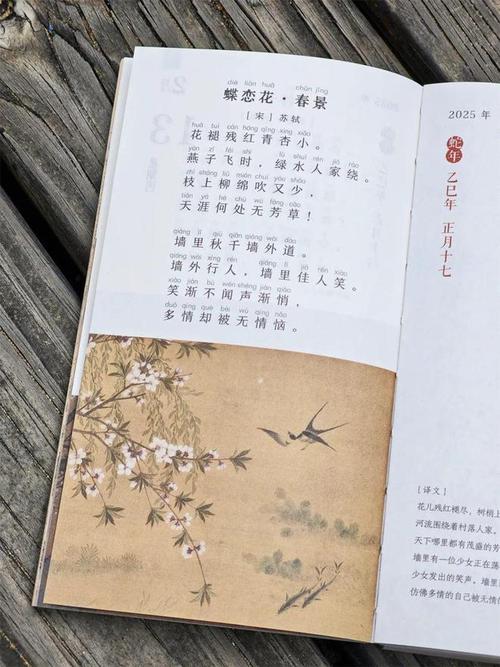 dié liàn huā chūn jǐng
蝶恋花·春景
［宋］苏轼
huā tuì cán hóng qīng xìng xiǎo
花褪残红青杏小。
yàn zǐ fēi shí lǜ shuǐ rén jiā rào
燕子飞时，绿水人家绕。
zhī shàng liǔ mián chuī yòu shǎo
枝上柳绵吹又少，
tiān yá hé chù wú fāng cǎo
天涯何处无芳草！
qiáng lǐ qiū qiān qiáng wài dào
墙里秋千墙外道。
qiáng wài xíng rén qiáng lǐ jiā rén xiào
墙外行人，墙里佳人笑。
xiào jiàn bù wén shēng jiàn qiǎo
笑渐不闻声渐悄，
duō qíng què bèi wú qíng nǎo
多情却被无情恼。
2025 年
蛇年
乙巳年 正月十七
［译文］
花儿残红褪尽，树梢上
河流围绕着村落人家。
天下哪里都有茂盛的芳
墙里有一位少女正在荡
少女发出的笑声。墙里
仿佛多情的自己被无情